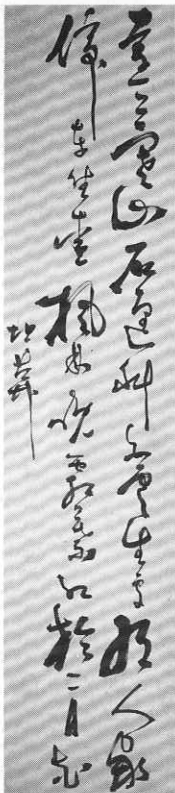 遠上寒山石逕斜白雲生處有人家
停車坐愛楓林晚霜葉紅於二月花